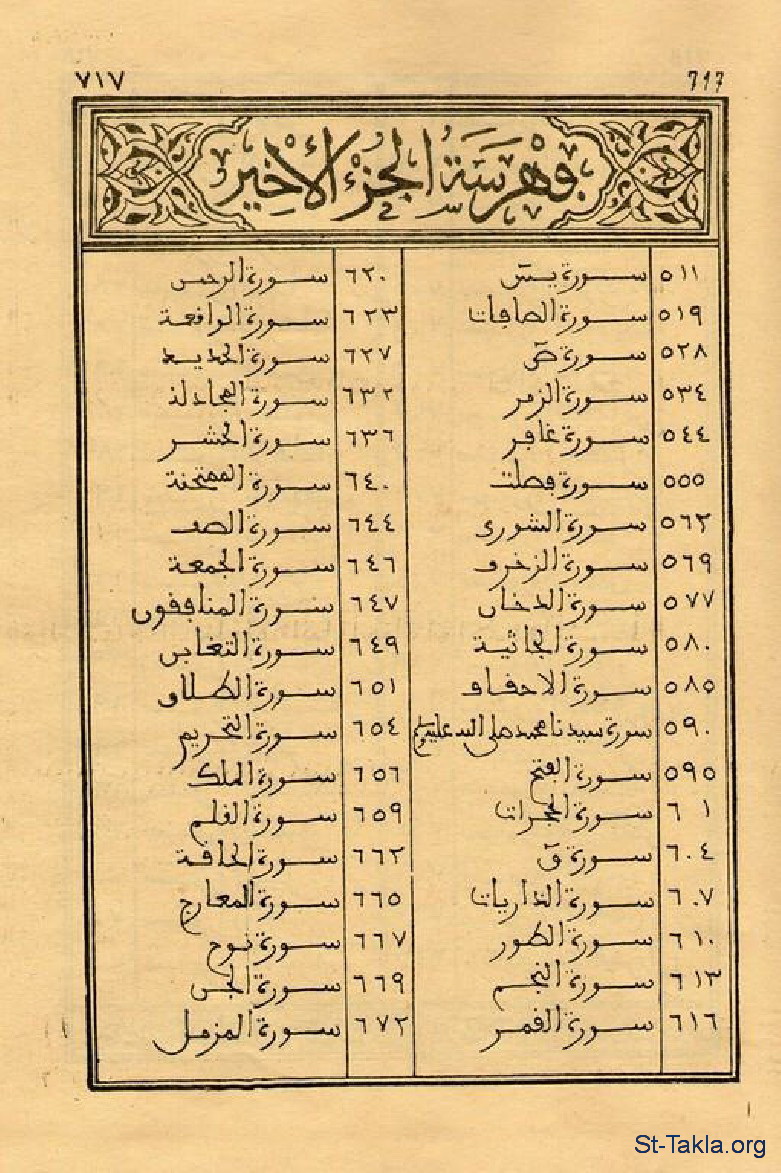 ٧١٧
717
فهرسة الجزء الأخير
٥١١ سورة يس
٥١٩ سورة الصافات
٥٢٨ سورة ص
٥٣٤ سورة الزمر
٥٤٤ سورة غافر
٥٥٥ سورة فصلت
٥٦٢ سورة الشورى
٥٦٩ سورة الزخرف
٥٧٧ سورة الدخان
٥٨٠ سورة الجاثية
٥٨٥ سورة الاحقاف
٥٩٠ سورة سيدنا محمد صلى الله عليه وسلم
٥٩٥ سورة الفتح
٦ ١ سورة الحجرات
٦٠٤ سورة ق
٦٠٧ سورة الذاريات
٦١٠ سورة الطور
٦١٣ سورة النجم
٦١٦ سورة القمر
٦٢٠ سورة الرحمن
٦٢٣ سورة الواقعة
٦٢٧ سورة الحديد
٦٣٢ سورة المجادلة
٦٣٦ سورة الحشر
٦٤٠ سورة الممتحنة
٦٤٤ سورة الصف
٦٤٦ سورة الجمعة
٦٤٧ سورة المنافقون
٦٤٩ سورة التغابن
٦٥١ سورة الطلاق
٦٥٤ سورة التحريم
٦٥٦ سورة الملك
٦٥٩ سورة القلم
٦٦٢ سورة الحاقة
٦٦٥ سورة المعارج
٦٦٧ سورة نوح
٦٦٩ سورة الجن
٦٧٢ سورة المزمل
St-Takla.org